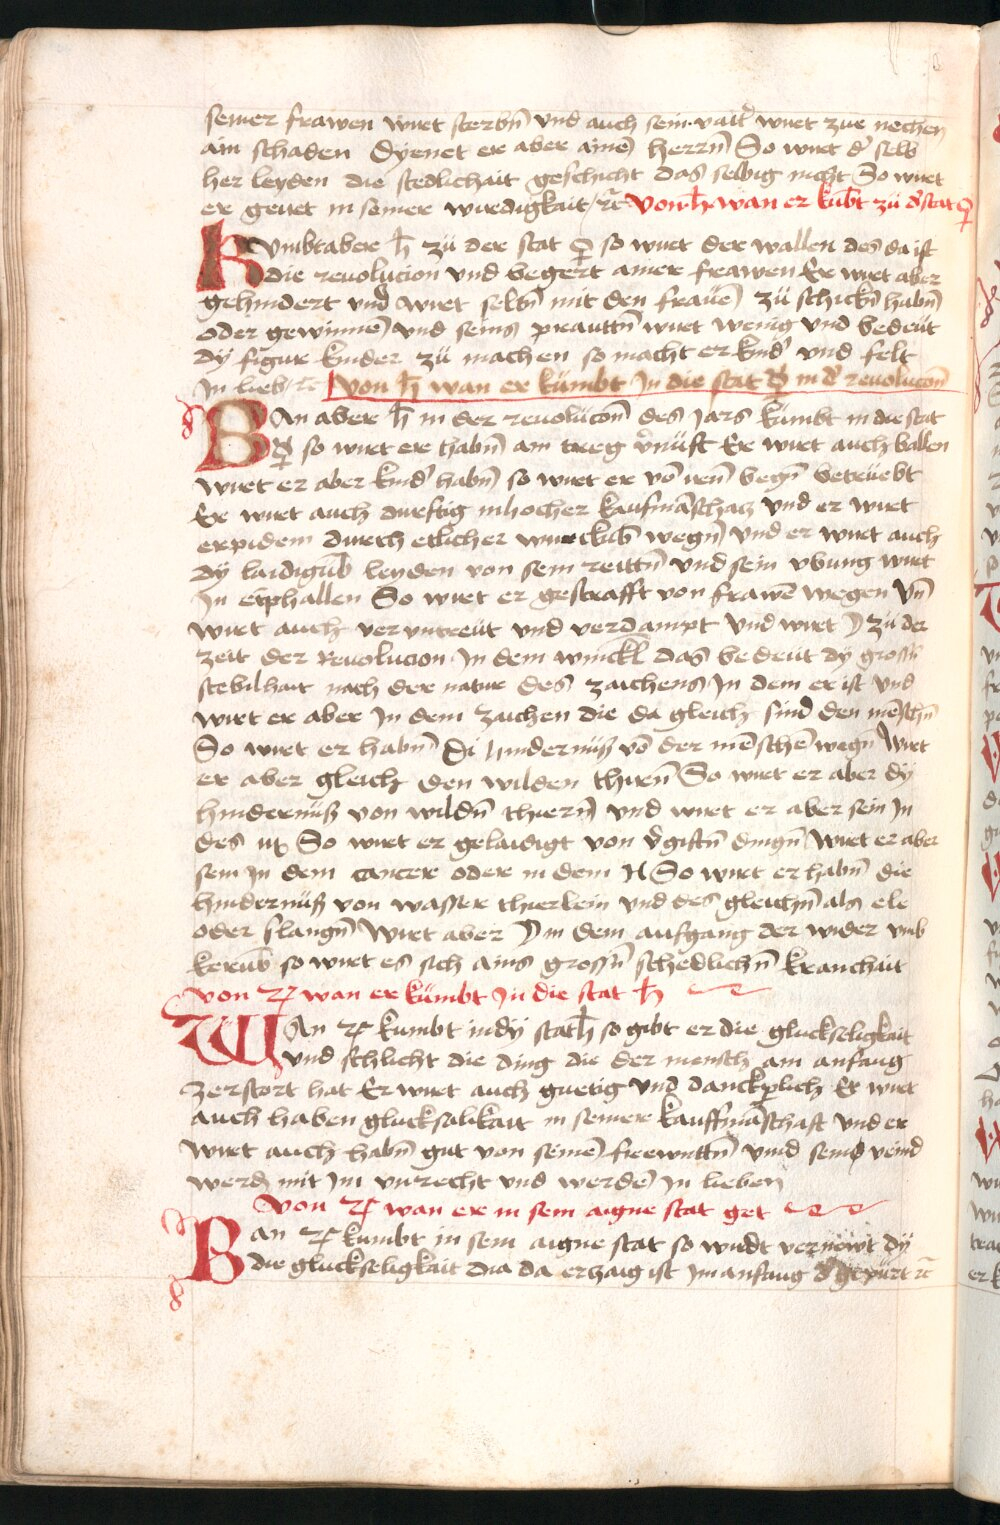 seiner frawen wirt sterbn̄ vnd auch sein vatr̄ wirt zue nechen
ain schaden Dyenet er aber aine) herrn̄ So wirt d' selb
her leyden die stedlichait geschicht das selbig nicht So wirt
er geret in seiner wirdigkait / ꝛc̄ Von ♄ wan er kūbt zü d' stat ♀
Kumbt aber ♄ zü der stat ♀ so wirt der wallen des da ist
die reuolucion vnd begert ainer frawen Er wirt aber
gehindert vnd wirt selbn̄ mit den frauē) zü schickn̄ habn̄
oder gewinnē) vnd seins prauttn̄ wirt wenig vnd bedeüt
dy figur kinder zü machen so macht er kind' vnd felt
In lieb / ꝛc̄ Von ♄ wan er kümbt In die stat ☿ in d' reuolucōn
Wan aber ♄ in der reuolucōn des Jars kümbt in die stat
☿ so wirt er habn̄ ain treg v̄nüft Er wirt auch ballen
wirt er aber kind' habn̄ so wirt er vō iren̄ wegn̄ betrüebt
Er wirt auch durftig in hocher kaufmāschacz vnd er wirt
erpidem durch etlicher wurckūb wegn̄) vnd er wirt auch
dy laidigūb leyden von sein reittn̄ vnd sein vbung wirt
In enphallen So wirt er gestrafft von frawē wegen Vn̄
wirt auch veruntreut vnd verdampt vnd wirt ☽ zü der
zeit der Reuolucion In dem winckl das bedeut dy grossn̄
stebilhait nach der natur des zaichens In dem er ist vnd
wirt er aber In dem zaichen die da gleich sind den mēschn̄
So wirt er habn̄ Di hindernüß vō der mēschē wegn̄ Wirt
er aber gleich den wilden thirn̄ So wirt er aber dy
hindernüß von wildn̄ thiern̄) vnd wirt er aber sein In
des ♏ So wirt er gelaidigt von v̄giftn̄ dingn̄ Wirt er aber
sein In dem cancer oder in dem ♓ So wirt er habn̄ die
hindernüß von wasser thierlein vnd des gleichn̄ als ele
oder slangn̄ Wirt aber ☽ in dem aufgang der wider vmb
kerūb so wirt es sich ains grossn̄ schedlichn̄ kranchait
Von ♃ wan er kümbt In die stat ♄
Wan ♃ kumbt in dy stat ♄ so gibt er die gluckseligkait
vnd schlicht die ding die der mensch am anfang
zerstort hat Er wirt auch guetig vnd danckperlich Er wirt
auch haben glucksalikait in seiner kauffmāschaft vnd er
wirt auch habn̄ gut von seinē) freewnttn̄ vnnd seind veind
werdn̄ mit Im vnrecht vnd werdē) In lieben
Von ♃ wan er in sein aigne stat get
Wan ♃ kumbt in sein aigne stat so wirdt vernewt dy
die gluckseligkait Dia da erzaigt ist Im anfang d' gepürt ꝛc̄